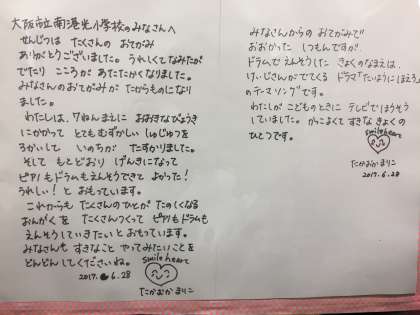 大阪市立南港光小学校のみなさんへ
せんじつは たくさんの おてがみ
ありがとうございました。うれしくてなみだが
でたり こころが あたたかくなりました。
みなさんのおてがみが たからものになり
ました。
わたしは、7ねんまえに おおきなびょうき
にかかって とてもむずかしい しゅじゅつを
3かいして いのちが たすかりました。
そして もとどおり げんきになって
ピアノもドラムもえんそうできて よかった!
うれしい! と おもっています。
これからも たくさんのひとが たのしくなる
おんがくを たくさんつくって ピアノもドラムも
えんそうしていきたいとおもっています。
みなさんも すきなこと やってみたいことを
どんどんしてくださいね。
smile heart
2017. 6.28
たかおかまりこ
みなさんからの おてがみで
おおかった しつもんですが、
ドラムでえんそうした きょくのなまえは、
けいじさんがでてくる ドラマ「たいようにほえろ」
のテーマソングです。
わたしが こどものときに テレビでほうそう
していました。かっこよくて すきな きょくの
ひとつです。
smile heart
たかおかまりこ
2017.6.28